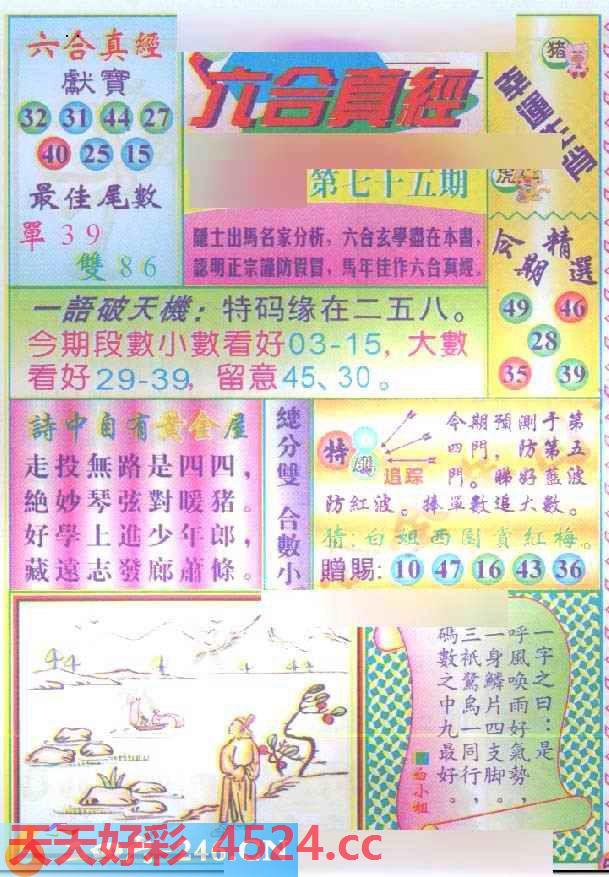 六合真經
獻寶
32 31 44 27
40 25 15
最佳尾數
單 3 9
雙 8 6
六合真經
第七十五期
隱士出馬名家分析，六合玄學盡在本書，
認明正宗謹防假冒，馬年佳作六合真經。
猪
虎
今期精選
49 46
28
35 39
一語破天機：特码缘在二五八。
今期段數小數看好03-15，大數
看好29-39，留意45、30。
詩中自有黃金屋
走投無路是四四，
絕妙琴弦對暖猪。
好學上進少年郎，
藏遠志發廊蕭條。
總分雙 合數小
特碼
追踪
今期預測于第
四門，防第五
門。睇好藍波
防紅波。捧單數追大數。
猜：白姐西園賞紅梅。
贈賜：10 47 16 43 36
一字之曰：是
呼風喚雨好氣勢，
一身鱗片四支脚。
三衹鴛鳥一同行，
碼數之中九最好。
天天好彩 4524.cc
246.CN